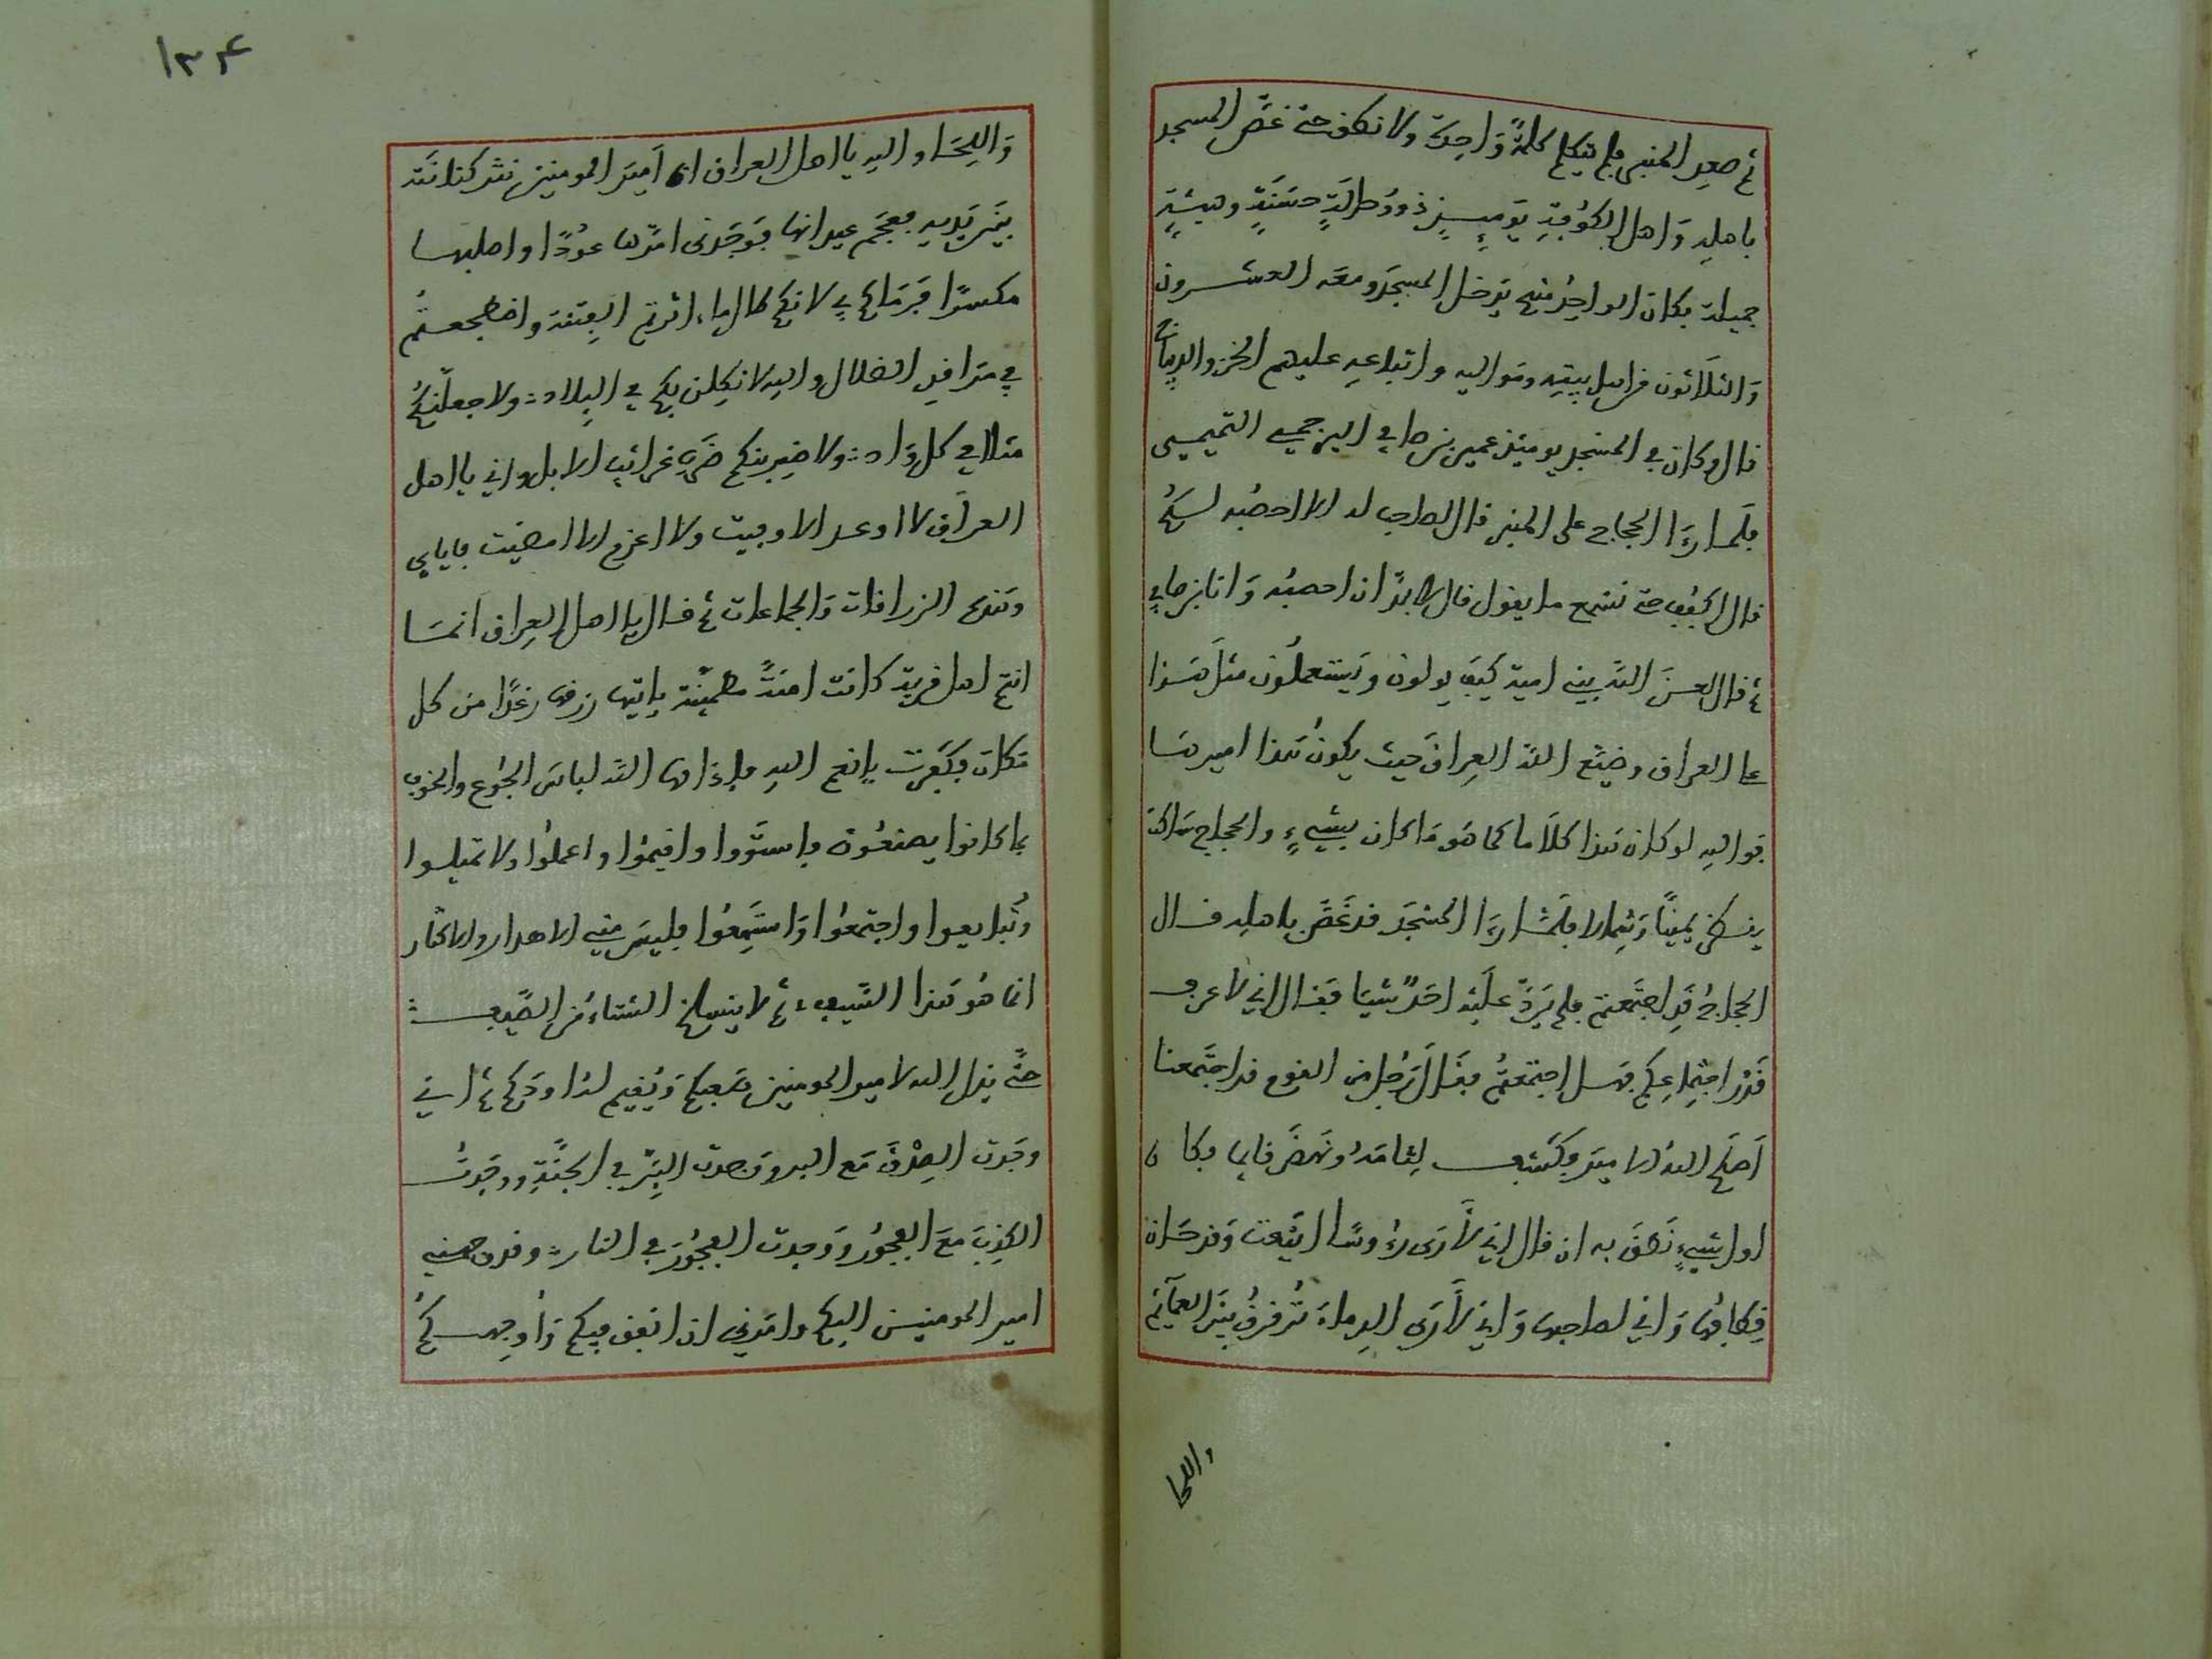 ثم صعد المنبر فلم يتكلم كلمة واحدة ولا نطق حتى غص المسجد
باهله وَاهل الكوفة يَوميِذٍ ذووُ حالةٍ حسَنةٍ وهيئةٍ
جميلة فكان الواحِدُ منهم يَدخل المسجدَ ومعَه العشرون
وَالثلاثون من اهل بيتِه ومَواليه واتباعه عليهم الخز والديباج
قال وكان في المسجد يوميئذ عمير بن ضابي البرجمي التميمي
فلمـا رءَا الحجاج على المنبر قال لصاحب له الا احصبُه لكم
قال اكفُف حتى نسْمع ما يقول فال لا بدَّ ان احصبُه وَانا ابن ضابي
ثم قال لعسنَ اللهُ بني امية كيفَ يولون ويَستعملُون مثلَ هَـذا
على العراق وضيَّع اللهُ العِراقَ حيث يكونُ هَذا اميرهَـا
فَواللهِ لو كان هَذا كلَاما كما هوَ مَا كان بشيءٍ والحجاج سَاكت
ينـظر يمينًا وَشِمالا فلَمَّـا رءَا المسْجدَ قد غَصَّ باهلِه قـال
الحجاجُ قدِ اجتَمعتم فلم يَردَّ علَيْه احَدٌ شيئا فَقال اني لاعرف
قَدْر اجتِماعِكم فهَـل اجتمَعتُم فقَال رَجُل من القوم قد اجتَمعنا
اَصلَح اللهُ الاميرَ فكَشف لِثامَهُ ونهَضَ قائما فكا ن
اول شيءٍ نَطَقَ به ان قال اِني لأَرى رُءُوسًا اينَعت وَقد حَان
قِطافُها وَاني لصاحِبها وَاني لأَرى الدِماءَ تُرقرقُ بينَ العمآئم
واللحا
١٣٤
وَاللِحَـا والله يا اهل العراق ان اَميرَ المومنين نثر كنانتَه
بَينَ يَديهِ فعجَم عيدانها فوَجَدني امَرّها عوُدًا واصلبها
مكسرًا فَرَمَاكم بي لانكم طال ما اثرتم الفِتنة واضطجعـتُم
في مَراقدِ الضلال والله لانكِلن بكم في البِلاد ولا جعلنكُم
مثلا في كل وَاد ولا ضِربنكم ضَربَ غرائِب الابل واني يا اهل
العراَق لا اوعـد الا وفيت ولا اعزم الا امضيت فاياي
وهَذه الزرافات وَالجماعات ثم قـال يا اهل العِراق انمـَا
انتم اهل قرية كانت امنةً مطميِنَّة ياتيها رزقها رغدًا من كل
مَكان فكَفَرت بانعم اللهِ فاذاقها اللهُ لباسَ الجُوع والخوف
بما كانوا يصنَعُون فاستَووا واقيمُوا واعملُوا ولا تميلـوا
وتُبايعـوا واجتمعُوا وَاستَمِعُوا فليسَ مني الاهدار والاكثار
انما هُو هَذا السَّيف ثم لا ينسلخ الشتاءُ من الصَّيف
حتَّى يذل الله لامير المومنين صَعبكم وَيُقيم لهُ اودَكم ثم اني
وجَدت الصِدْقَ مَع البر ووَجدت البِرَّ في الجنَّةِ ووَجَدتُ
الكَذِبَ معَ الفجُور وَوجدت الفجُورَ في النار وقد وجهني
امير المومنيـن اليكم وامَرني ان انفق فيكم وَأوجِهـكُم